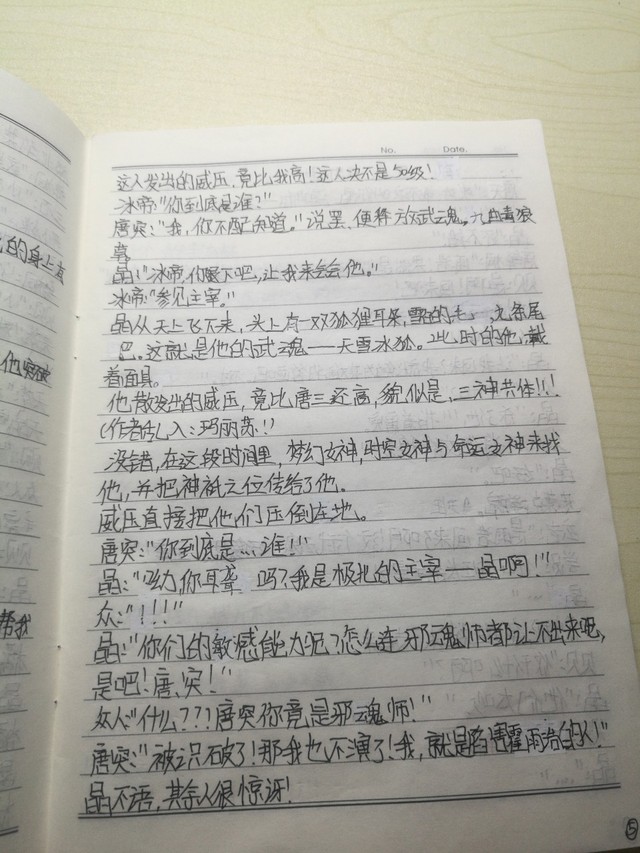 No.        Date.
这人发出的威压,竟比我高!这人决不是50级!
冰帝:"你到底是谁?"
唐突:"我,你不配知道。"说罢,便释放武魂。九曲毒狼
毒
晶:"冰帝,你退下吧,让我来会会他。"
冰帝:"参见主宰。"
晶从天上飞下来,头上有一双狐狸耳朵,雪白的毛,九条尾
巴,这就是他的武魂——天雪冰狐。此时的他,戴
着面具。
他散发出的威压,竟比唐三还高,貌似是,三神共体!!!
(作者乱入:玛丽苏!!)
没错,在这段时间里,梦幻女神,时空女神与命运女神来找
他,并把神祇之位传给了他。
威压直接把他们压倒在地。
唐突:"你到底是...谁!"
晶:"呦,你耳聋 吗?我是极北的主宰——晶啊!"
众:"!!!"
晶:"你们的敏感能力呢?怎么连邪魂师都认不出来吧,
是吧!唐,突!"
众人:"什么???唐突你竟是邪魂师!"
唐突:"被识破了!那我也不演了!我,就是陷害霍雨浩的人!"
晶不语,其余人很惊讶!
的身上直
他突破
帮我
⑤